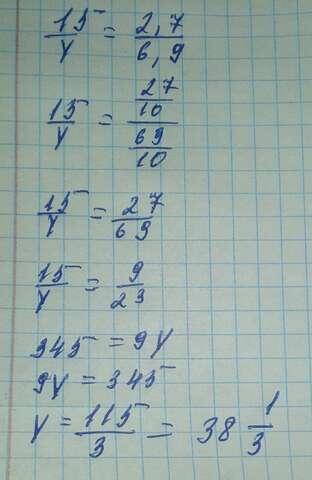 15/y = 2,7/6,9
15/y = 27/10 / 69/10
15/y = 27/69
15/y = 9/23
345 = 9y
9y = 345
y = 115/3 = 38 1/3